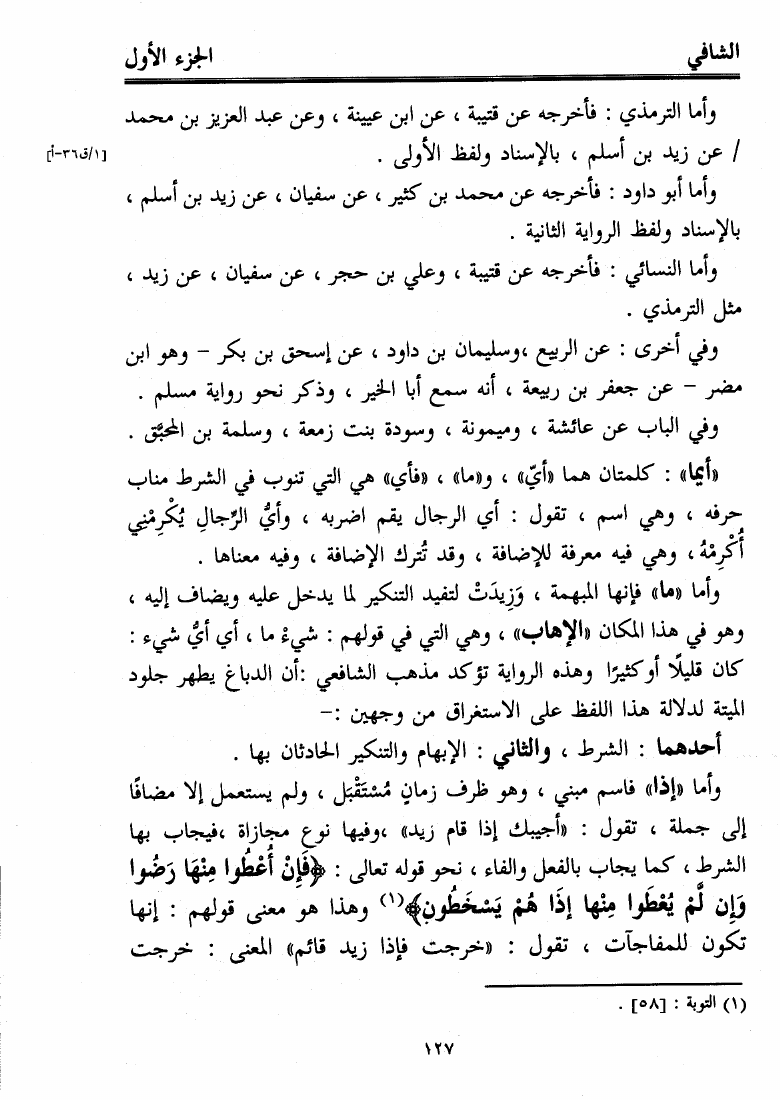 الشافي الجزء الأول
وأما الترمذي : فأخرجه عن قتيبة ، عن ابن عيينة ، وعن عبد العزيز بن محمد
/ عن زيد بن أسلم ، بالإسناد ولفظ الأولى . [١/ق٣٦-أ]
وأما أبو داود : فأخرجه عن محمد بن كثير ، عن سفيان ، عن زيد بن أسلم ،
بالإسناد ولفظ الرواية الثانية .
وأما النسائي : فأخرجه عن قتيبة ، وعلي بن حجر ، عن سفيان ، عن زيد ،
مثل الترمذي .
وفي أخرى : عن الربيع ،وسليمان بن داود ، عن إسحق بن بكر – وهو ابن
مضر – عن جعفر بن ربيعة ، أنه سمع أبا الخير ، وذكر نحو رواية مسلم .
وفي الباب عن عائشة ، وميمونة ، وسودة بنت زمعة ، وسلمة بن المحبَّق .
«أيما» : كلمتان هما «أيّ» ، و«ما» ، «فأي» هي التي تنوب في الشرط مناب
حرفه ، وهي اسم ، تقول : أي الرجال يقم اضربه ، وأيُّ الرِّجالِ يُكْرِمْنِي
أُكْرِمْهُ ، وهي فيه معرفة للإضافة ، وقد تُترك الإضافة ، وفيه معناها .
وأما «ما» فإنها المبهمة ، وَزِيدَتْ لتفيد التنكير لما يدخل عليه ويضاف إليه ،
وهو في هذا المكان «الإهاب» ، وهي التي في قولهم : شيءْ ما ، أي أيُّ شيء :
كان قليلًا أوكثيرًا وهذه الرواية تؤكد مذهب الشافعي :أن الدباغ يطهر جلود
الميتة لدلالة هذا اللفظ على الاستغراق من وجهين :–
أحدهما : الشرط ، والثاني : الإبهام والتنكير الحادثان بها .
وأما «إذا» فاسم مبني ، وهو ظرف زمانٍ مُسْتَقْبَل ، ولم يستعمل إلا مضافًا
إلى جملة ، تقول : «أجيبك إذا قام زيد» ،وفيها نوع مجازاة ،فيجاب بها
الشرط ، كما يجاب بالفعل والفاء ، نحو قوله تعالى : ﴿فَإِنْ أُعْطُوا مِنْهَا رَضُوا
وَإِن لَّمْ يُعْطَوا مِنْها إذَا هُمْ يَسْخَطُونِ﴾(١) وهذا هو معنى قولهم : إنها
تكون للمفاجآت ، تقول : «خرجت فإذا زيد قائم» المعنى : خرجت
(١) التوبة : [٥٨] .
١٢٧